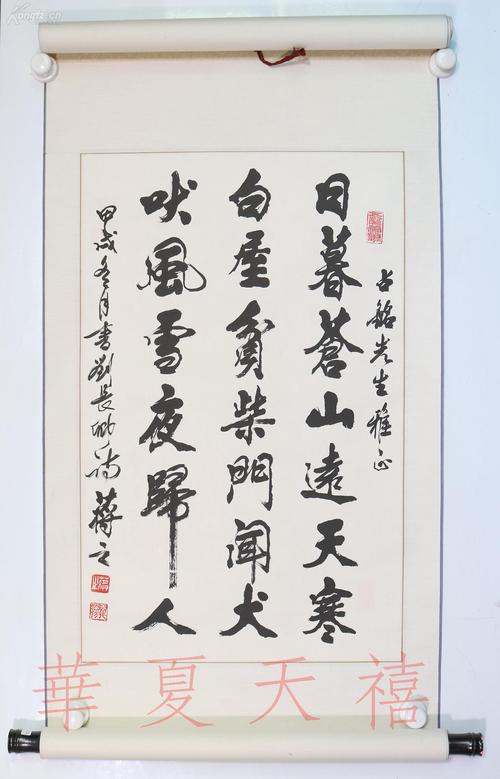 占銘先生雅正
日暮蒼山遠天寒
白屋貧柴門聞犬
吠風雪夜歸人
甲戌冬月書劉長卿詩 蔣
華夏天禧